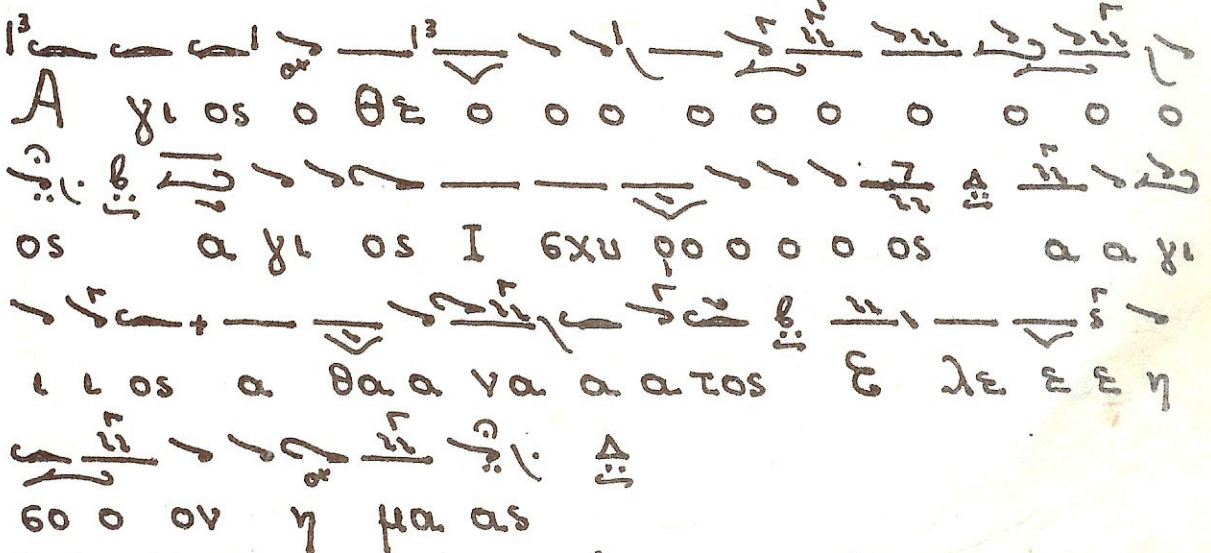 Α γι ος ο Θε ο ο ο ο ο ο ο ο ο ο
ος α γι ος Ι σχυ ρο ο ο ο ος α α γι
ι ι ος α θα α να α α τος Ε λε ε ε η
σο ο ον η μα ας